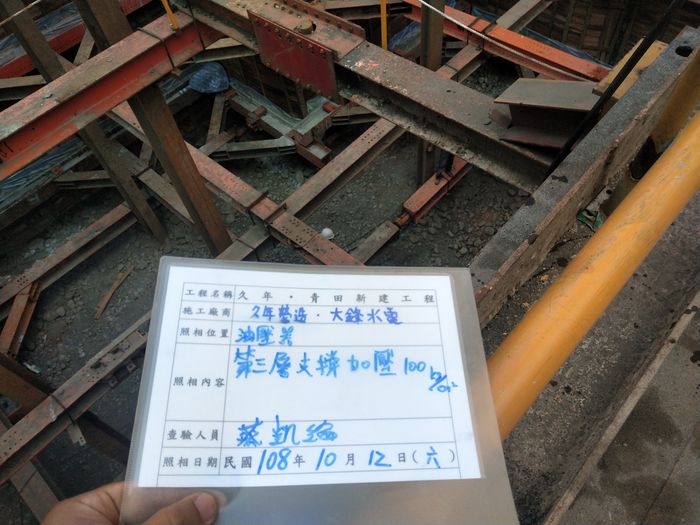 工程名稱 久年・青田新建工程
施工廠商 久年營造・大鋒水電
照相位置 油壓差
照相內容 第三層支撐加壓100
查驗人員 蔡凱
照相日期 民國108年10月12日(六)